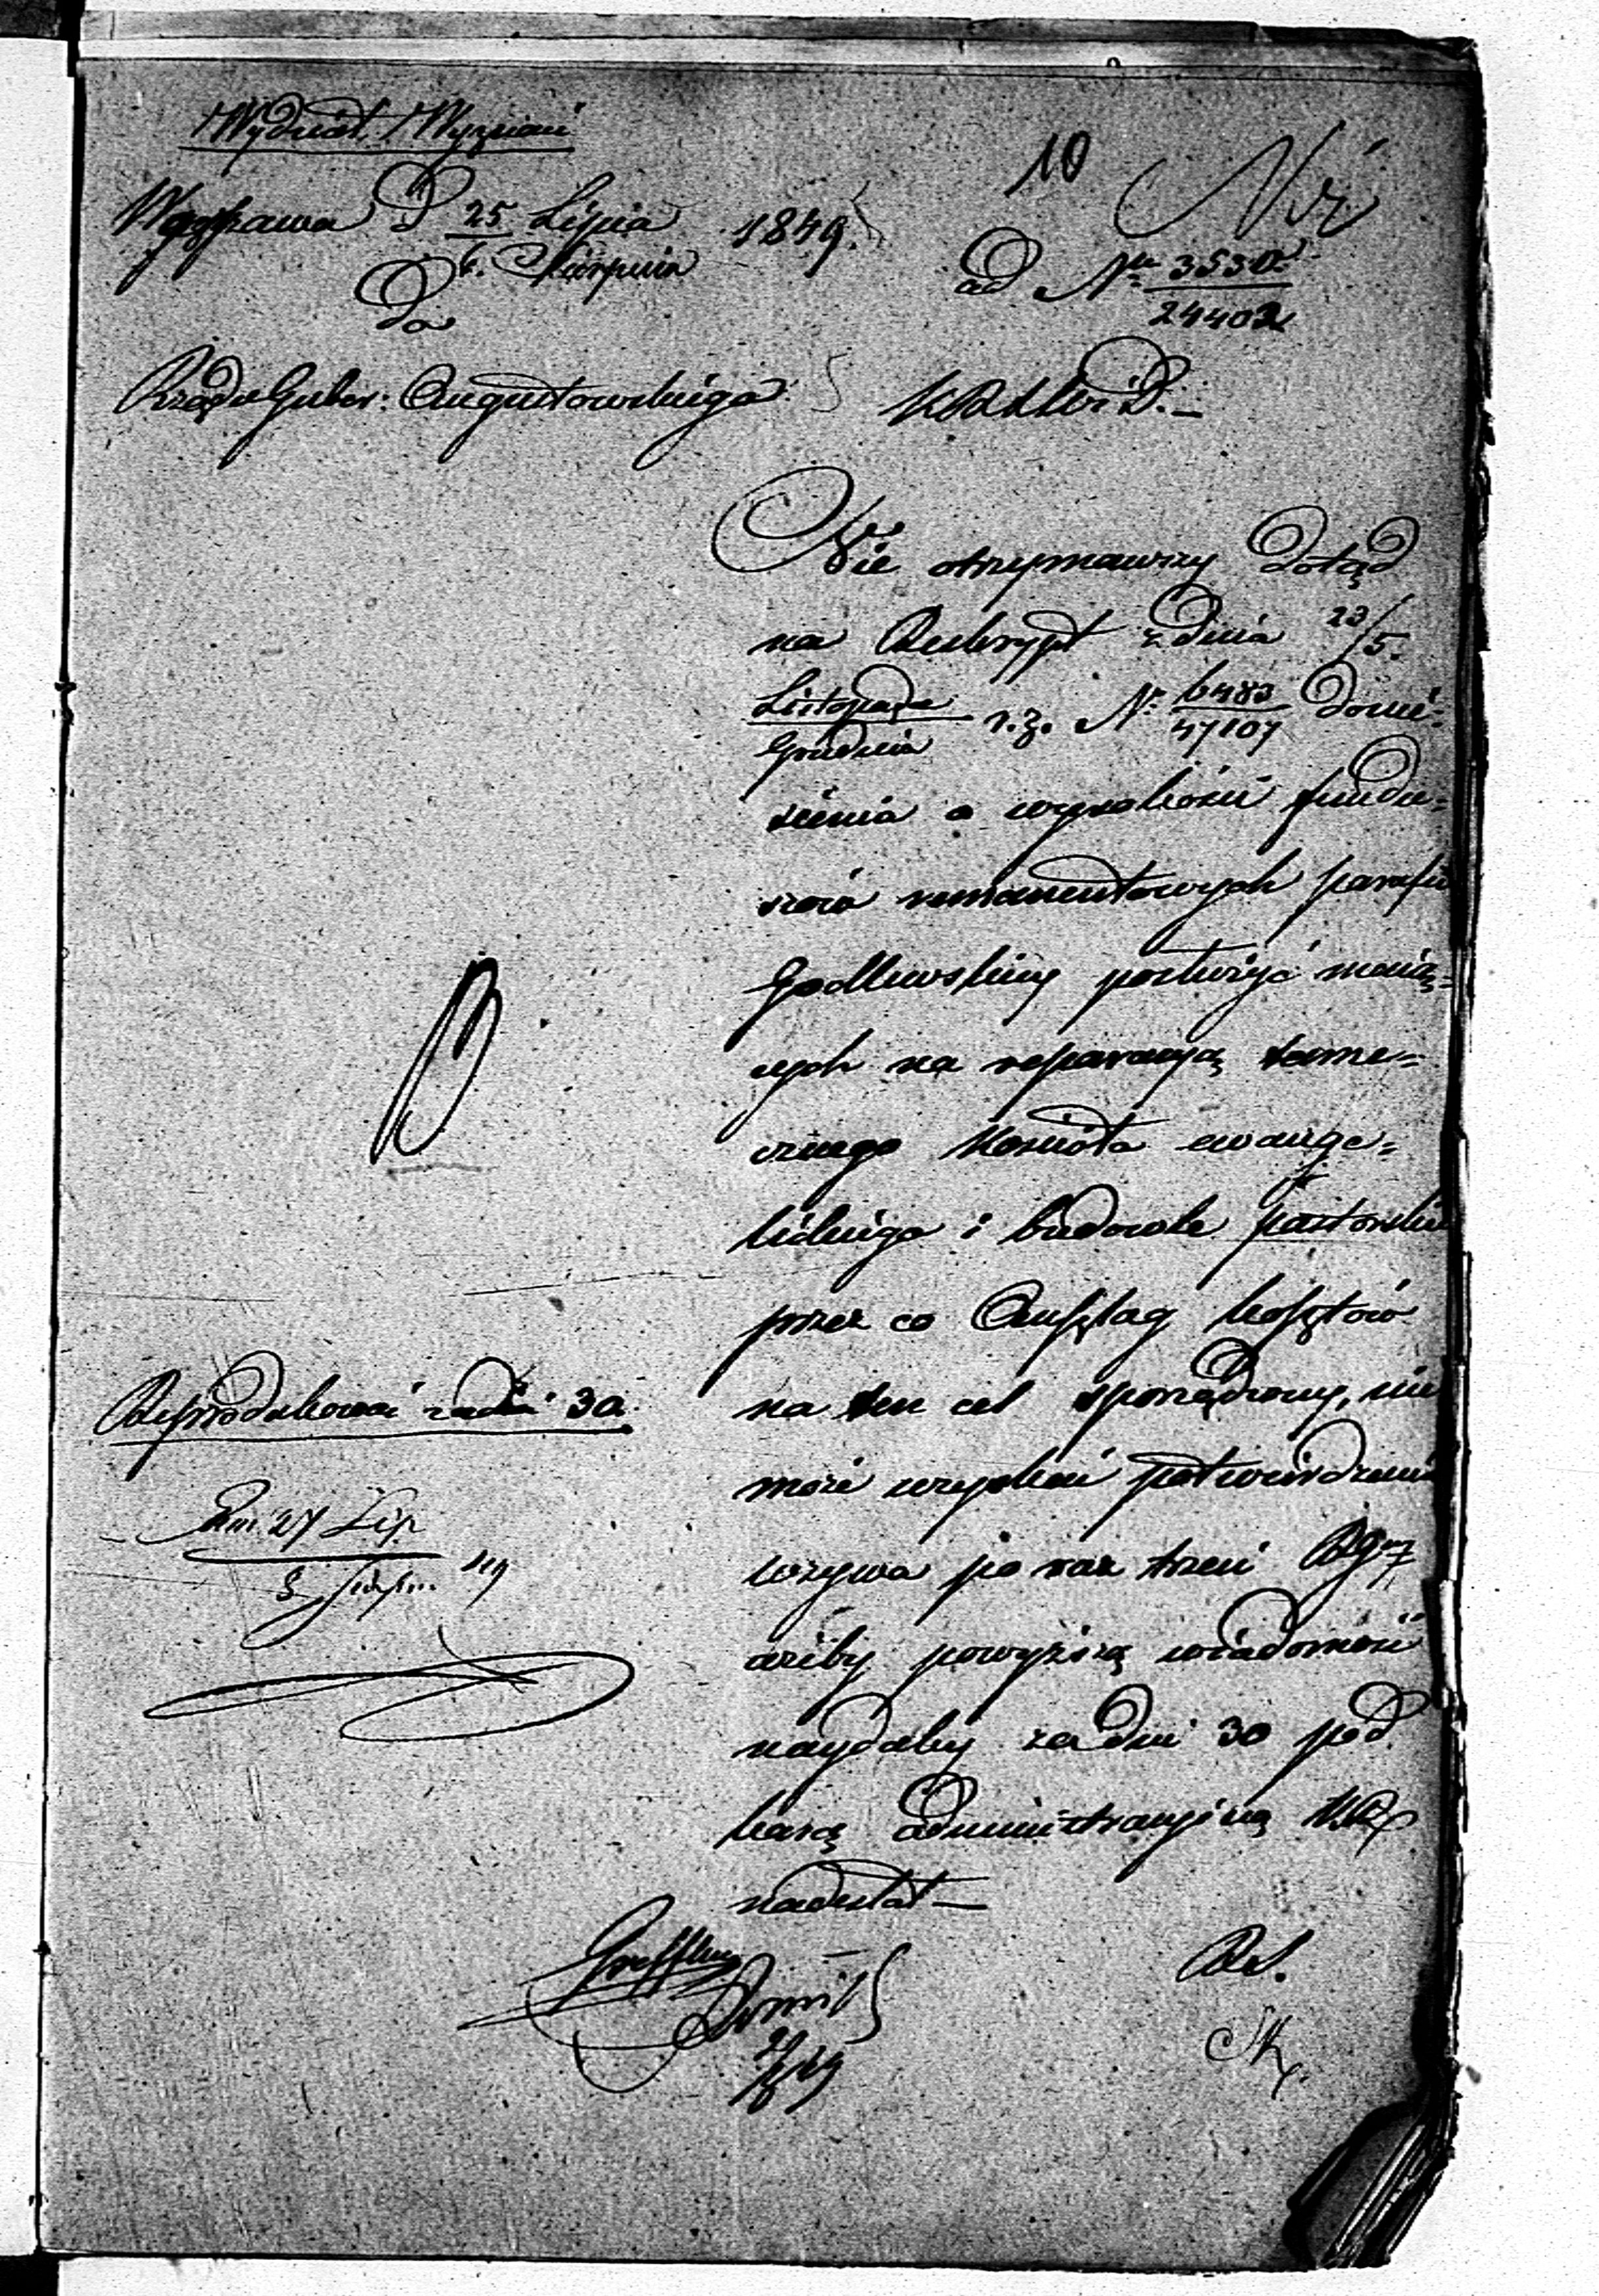 Wydział Wyznań
10
Warszawa d 25 Lipca 1849.
6. Sierpnia
Do
ad Nr 3530
24402
Rządu Guber: Augustowskiego
Nie otrzymawszy dotąd
na Reskrypt z dnia 23/5.
Listopada
Grudnia r. z. Nr 6483
47107 donie-
sienia o wysokości fundu-
szów remanentowych parafii
Godlewskiey posłużyć maią-
cych na reparacyą tame-
cznego Kościoła ewange-
lickiego i budowle pastorskie
przez co Anszlag kosztów
na ten cel sporządzony, nie
może uzyskać potwierdzenia
wzywa po raz trzeci RG
ażeby powyższą wiadomość
naydaley za dni 30 pod
karą administracyiną
nadesłał —
Reprodukować za dni 30.
27 Lip
8 Sierp. 49